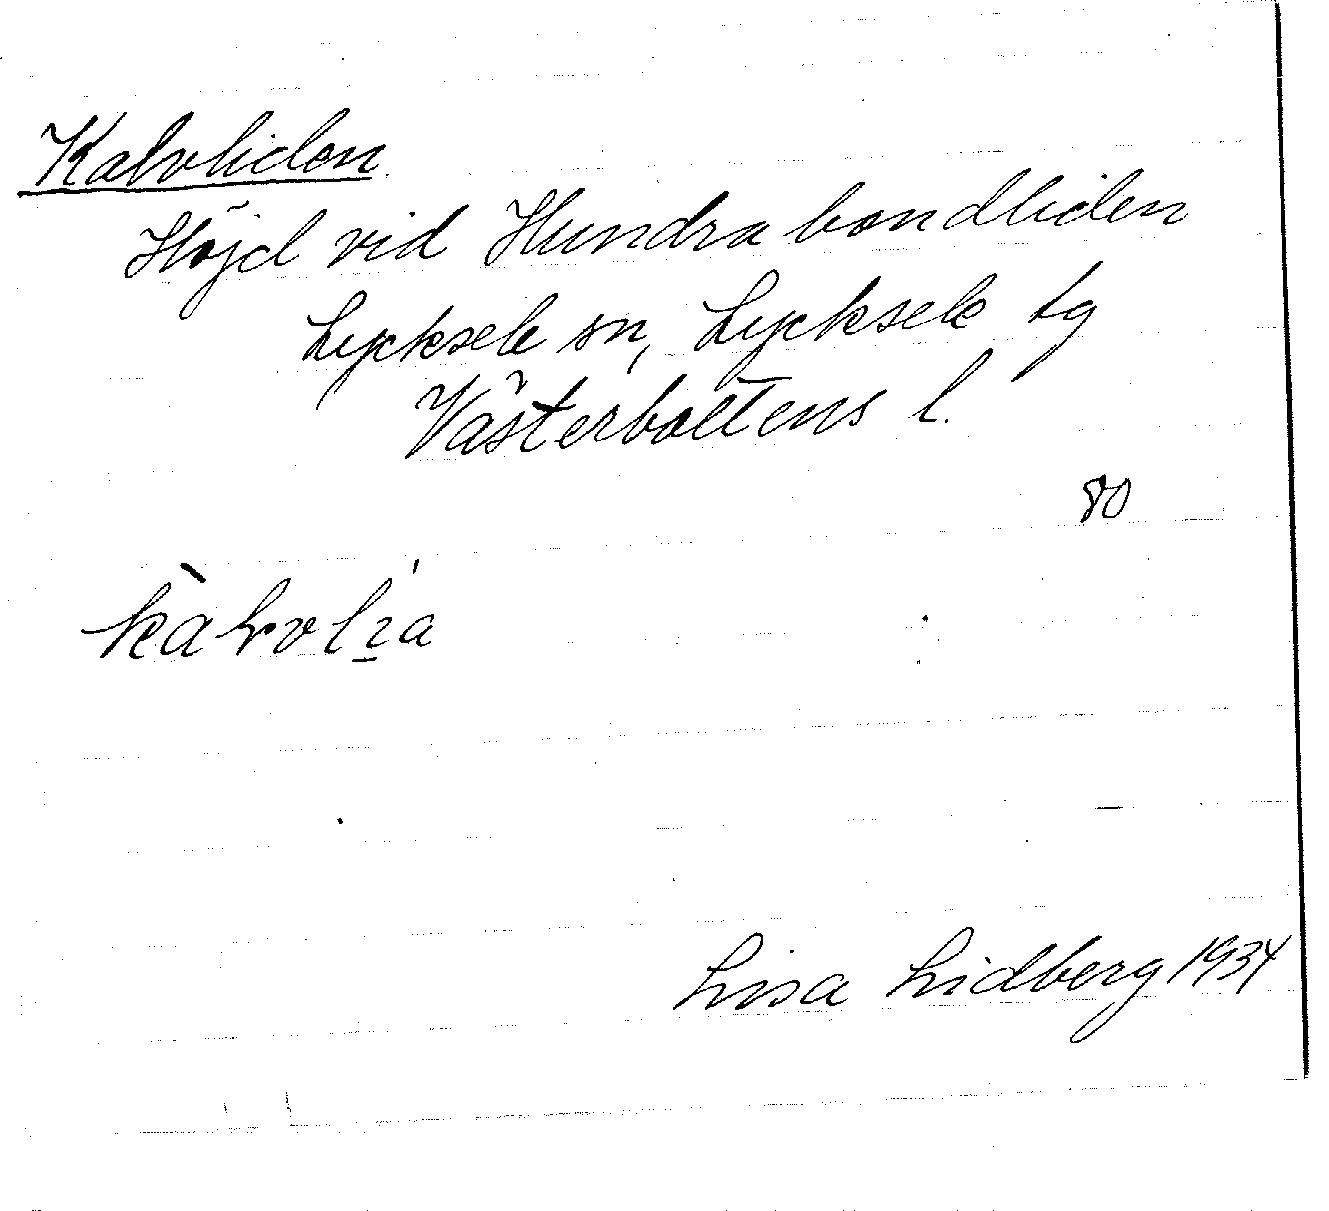 Kalvliden
Höjd vid Hundrabondliden
Lycksele sn, Lycksele tg
Västerbottens l.
80
Lisa Lidberg 1934